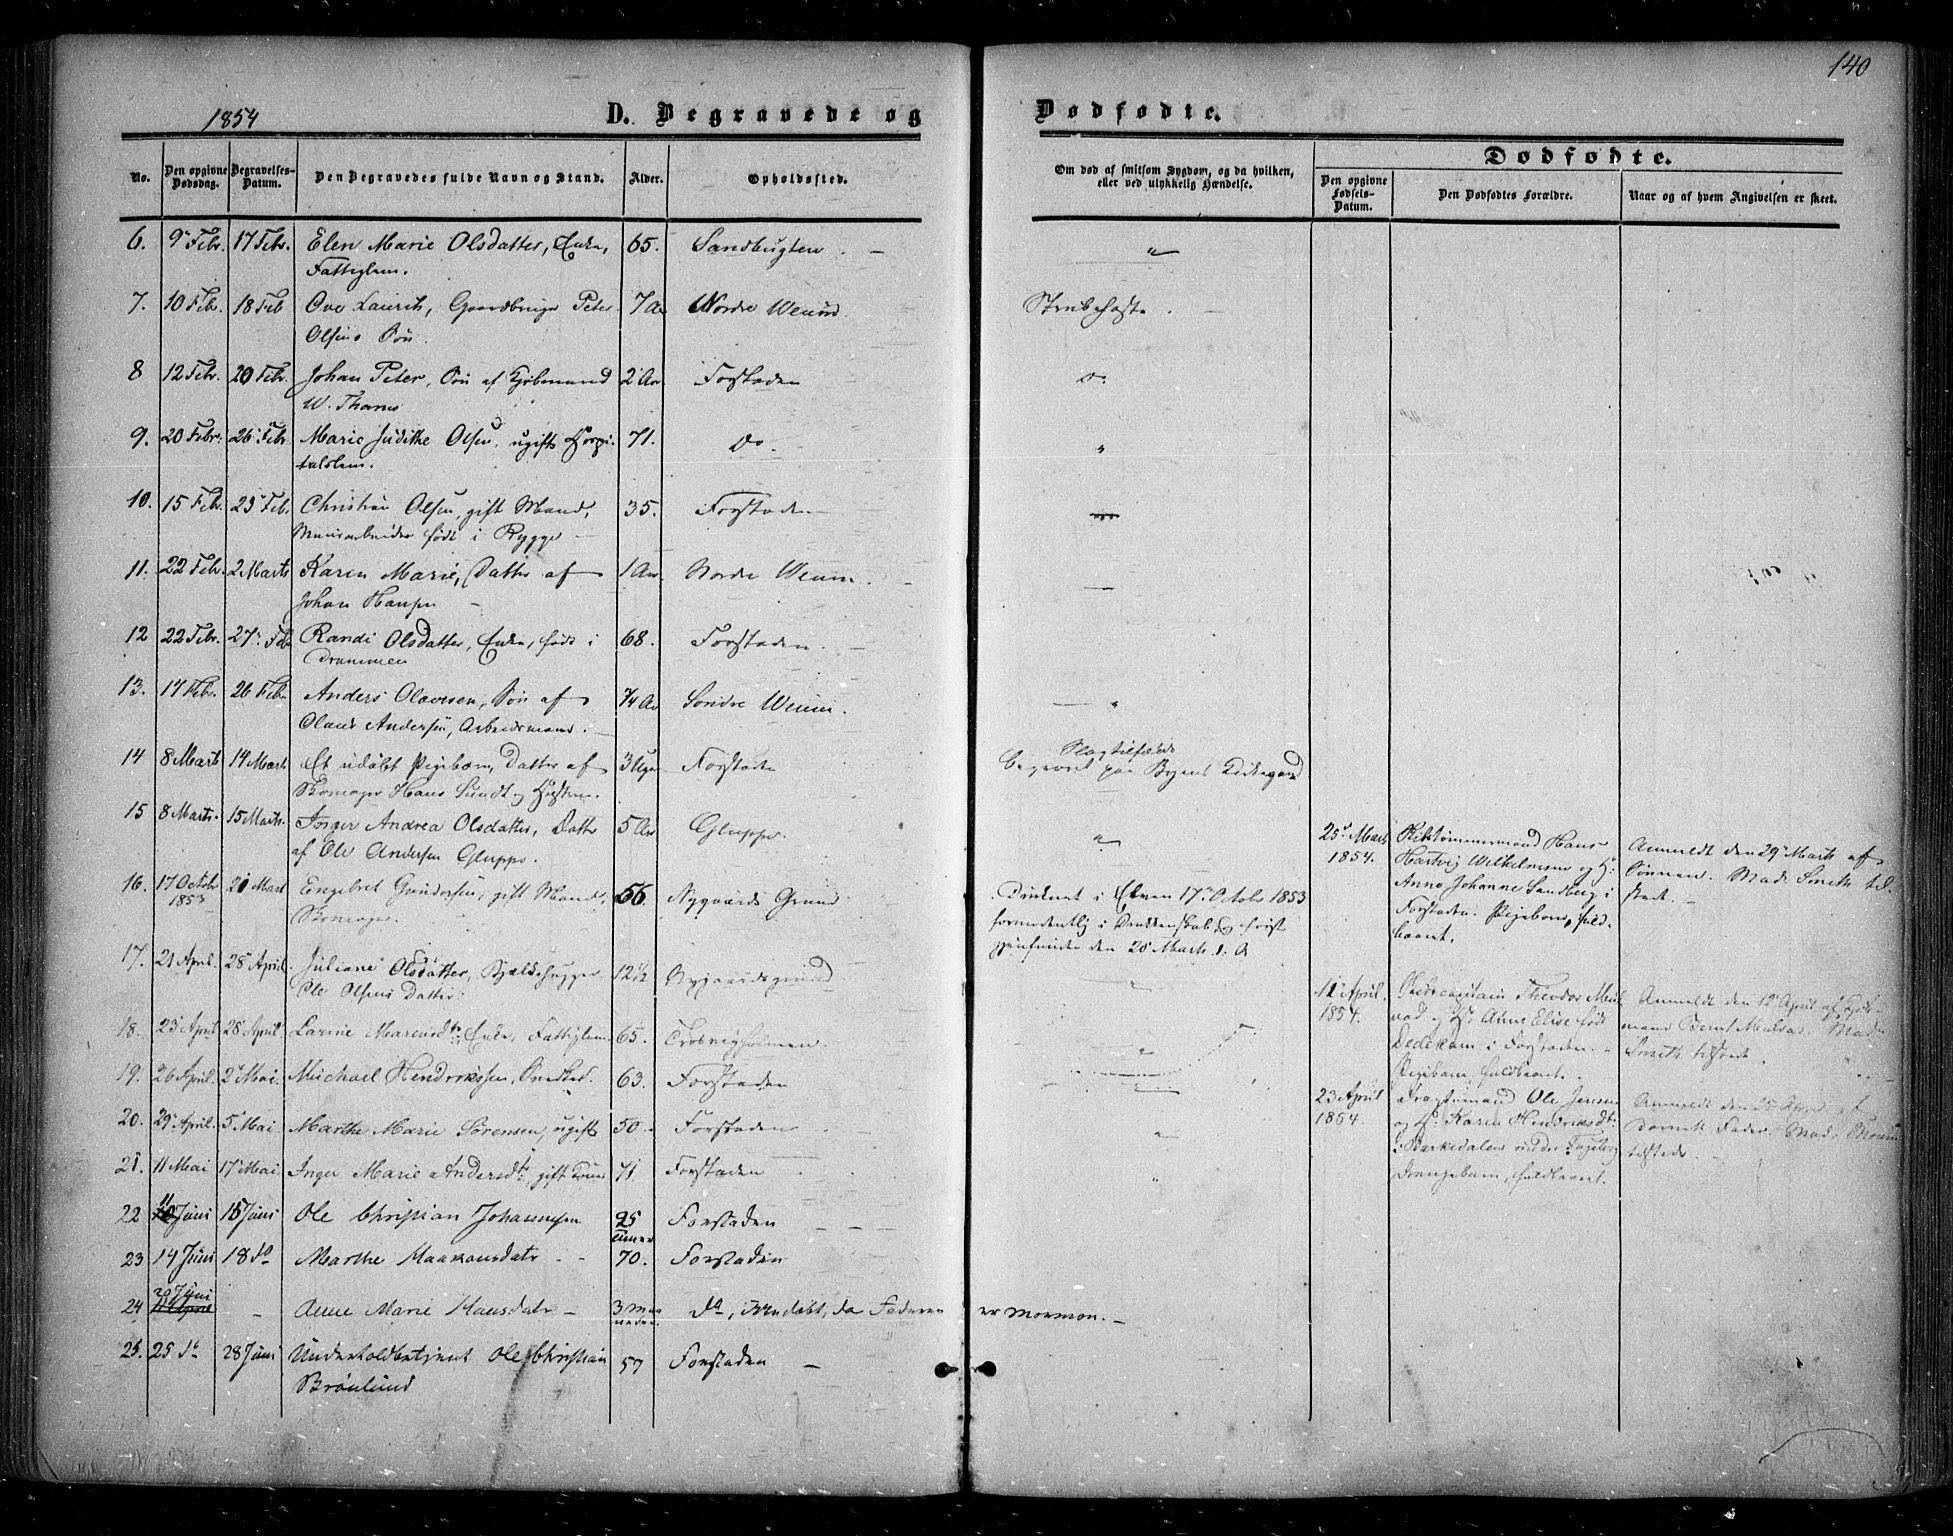 140
1854
D. Begravede og
Dødfødte.
No.
Den opgivne Dødsdag.
Begravelses-Datum.
Den Begravedes fulde Navn og Stand.
Alder.
Opholdssted.
Om død af smitsom Sygdom, og da hvilken,
eller ved ulykkelig Hændelse.
Dødfødte.
Den opgivne Fødsels-Datum.
Den Dødfødtes Forældre.
Naar og af hvem Angivelsen er skeet.
6. 9 Febr. 17 Febr. Elen Marie Olsdatter, Enke, 65. Sandbugten. "
Fattiglem.
7. 10 Febr. 18 Feb Ove Laurits, Gaardbruger Peter 7 Aar Nordre Weum. Strubehoste.
Olsens Søn.
8 12 Febr. 20 Febr. Johan Peter, Søn af Kjøbmand 2 Aar Forstaden Do.
W. Thames
9. 20 Febr. 26 Febr. Marie Judithe Olsen, ugift Hospi- 71. Do. "
talslem.
10. 15 Febr. 23 Feb. Christian Olsen, gift Mand, 35. Forstaden
Muurarbeider født i Rygge
11. 22 Feb. 2 Marts Karen Marie, Datter af 1 Aar Nordre Weum.
Johan Hansen
12 22 Febr. 27 Feb Randi Olsdatter, Enke, født i 68. Forstaden.
Drammen
13. 17 Febr. 26 Feb. Anders Olavesen, Søn af 7/4 Aar Søndre Weum. "
Olaus Andersen, Arbeidsmand.
14 8 Marts 14 Mart. Et udøbt Pigebarn, Datter af 3 Uger Forstaden Slagtilfælde
Skomager Hans Sundt og Hustru. begravet paa Byens Kirkegaard
15 8 Marts. 15 Marts. Inger Andrea Olsdatter, Datter 5 Aar Gluppe. "
af Ole Andersen Gluppe.
16. 17 Octobr 1853 21 Mart Engebret Gundersen, gift Mand, 56. Nygaards Grund Druknet i Elven 17 Octobr 1853
Skomager. formodentlig i Drukkenskab, først
gjenfunden den 20 Marts d. A
17. 21 April. 28 April. Juliane Olsdatter, Bjælkehugger 12½ Nygaardsgrund
Ole Olsens Datter.
18. 23 April 28 April. Larine Marcusdtr, Enke, Fattiglem 65.
19. 26 April. 2 Mai. Michael Hendrikssen, 63. Forstaden
20. 29 April. 5 Mai Marthe Marie Sørensen, ugift 50. Forstaden "
21. 11 Mai 17 Mai Inger Marie Andersdtr, gift Kone 71 Forstaden "
22 11 Juni 15 Juni Ole Christian Johannesen 25 Timer Forstaden
23 14 Juni 18 do Marthe Haakonsdatr 70. Forstaden
24 20 Juni - Anne Marie Hansdatr 3 maaneder. do, Uendøbt, da Faderen er Mormon.
25. 25 do 28 Juni Underholdbetjent Ole Christian 57 Forstaden
Brönlund
25 Marts 1854. Skibtømmermand Hans
Hartvig Wilhelmsen og H:
Anne Johanne Sandberg i
Forstaden. Pigebarn, fuld-
baaret.
Anmeldt den 29 Marts af
Mad. Smith til-
stede.
11 April. 1854. Skibscapitain Theodor
og H: Anne Elise født
Dedekam i Forstaden.
Pigebarn, fuldbaaret.
Anmeldt den 12 April af Kjøb-
mand Bernt Mad.
Smith tilstede.
23 April 1854. Ole Jensen
og H: Karen Hendriksdtr
Drengebarn, fuldbaaret.
Anmeldt den 25 April af
Barnets Fader. Mad.
tilstede.